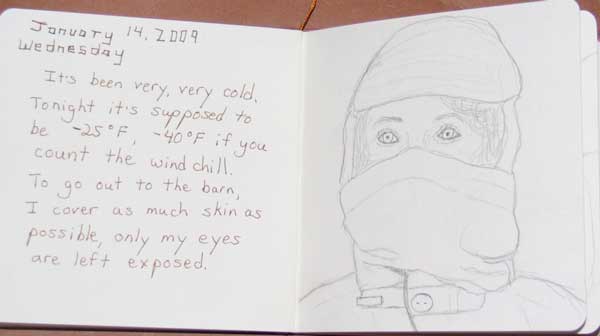 January 14, 2009
Wednesday
It's been very, very cold.
Tonight it's supposed to
be -25°F, -40°F if you
count the wind chill.
To go out to the barn,
I cover as much skin as
possible, only my eyes
are left exposed.